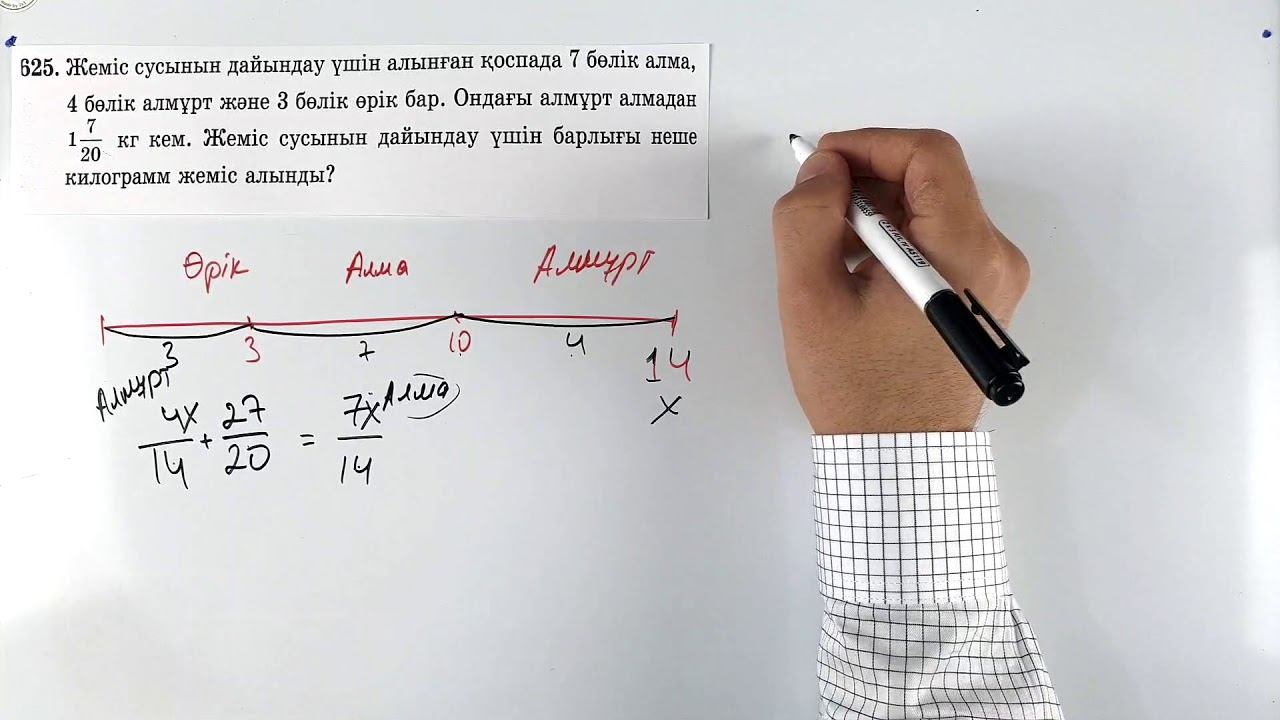 625. Жеміс сусынын дайындау үшін алынған қоспада 7 бөлік алма,
4 бөлік алмұрт және 3 бөлік өрік бар. Ондағы алмұрт алмадан
1 7/20 кг кем. Жеміс сусынын дайындау үшін барлығы неше
килограмм жеміс алынды?
Өрік Алма Алмұрт
3 3 7 10 4 14
x
Алмұрт Алма
4x/14 + 27/20 = 7x/14